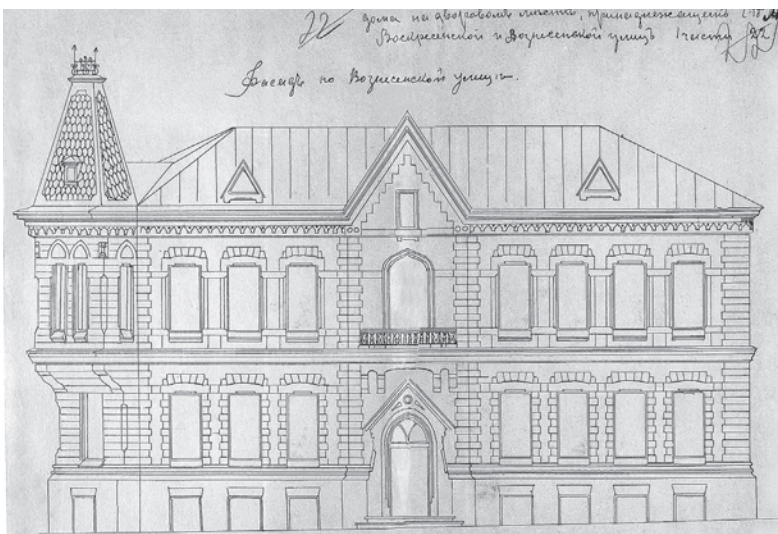 22 дома на дворовомъ мѣстѣ, принадлежащемъ
Воскресенской и Вознесенской улицъ 1 части 22
Фасадъ по Вознесенской улицѣ.